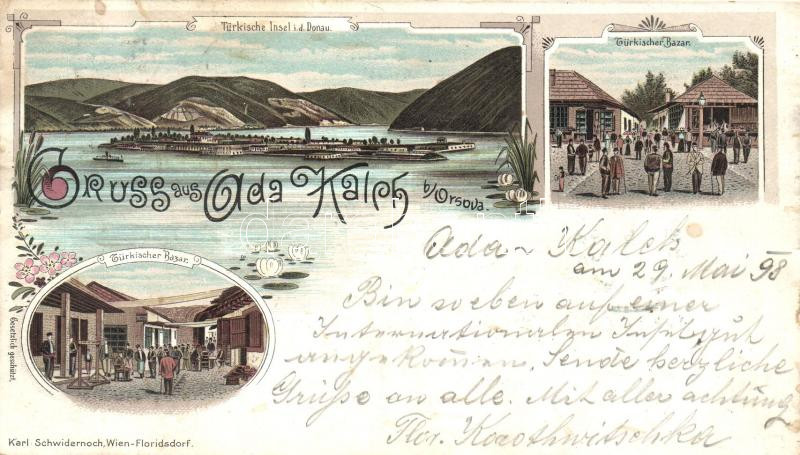 Türkische Insel i. d. Donau.
Türkischer Bazar.
Gruss aus Ada Kaleh b/Orsova.
Türkischer Bazar.
Gesetzlich geschützt.
Ada - Kaleh
am 29. Mai 98
Bin soeben auf einer
Internationalen Insel gut
angekommen. Sende herzliche
Grüße an alle. Mit aller achtung
Flor.
Karl Schwidernoch, Wien-Floridsdorf.